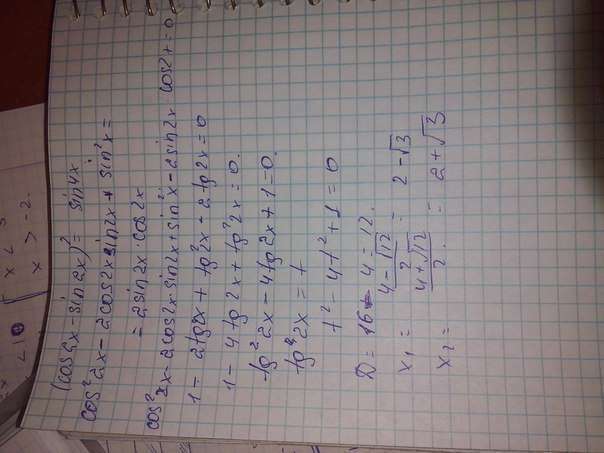 (cos2x - sin2x)² = sin4x
cos²2x - 2cos2x sin2x + sin²x =
= 2sin2x cos2x
cos²2x - 2cos2x sin2x + sin²x - 2sin2x cos2x = 0
1 - 2tg2x + tg²2x - 2tg2x = 0
1 - 4tg2x + tg²2x = 0.
tg²2x - 4tg2x + 1 = 0.
tg2x = t
t² - 4t + 1 = 0
D = 16 - 4 = 12.
x₁ = (4 - √12)/2 = 2 - √3
x₂ = (4 + √12)/2 = 2 + √3
x <
x > -2.